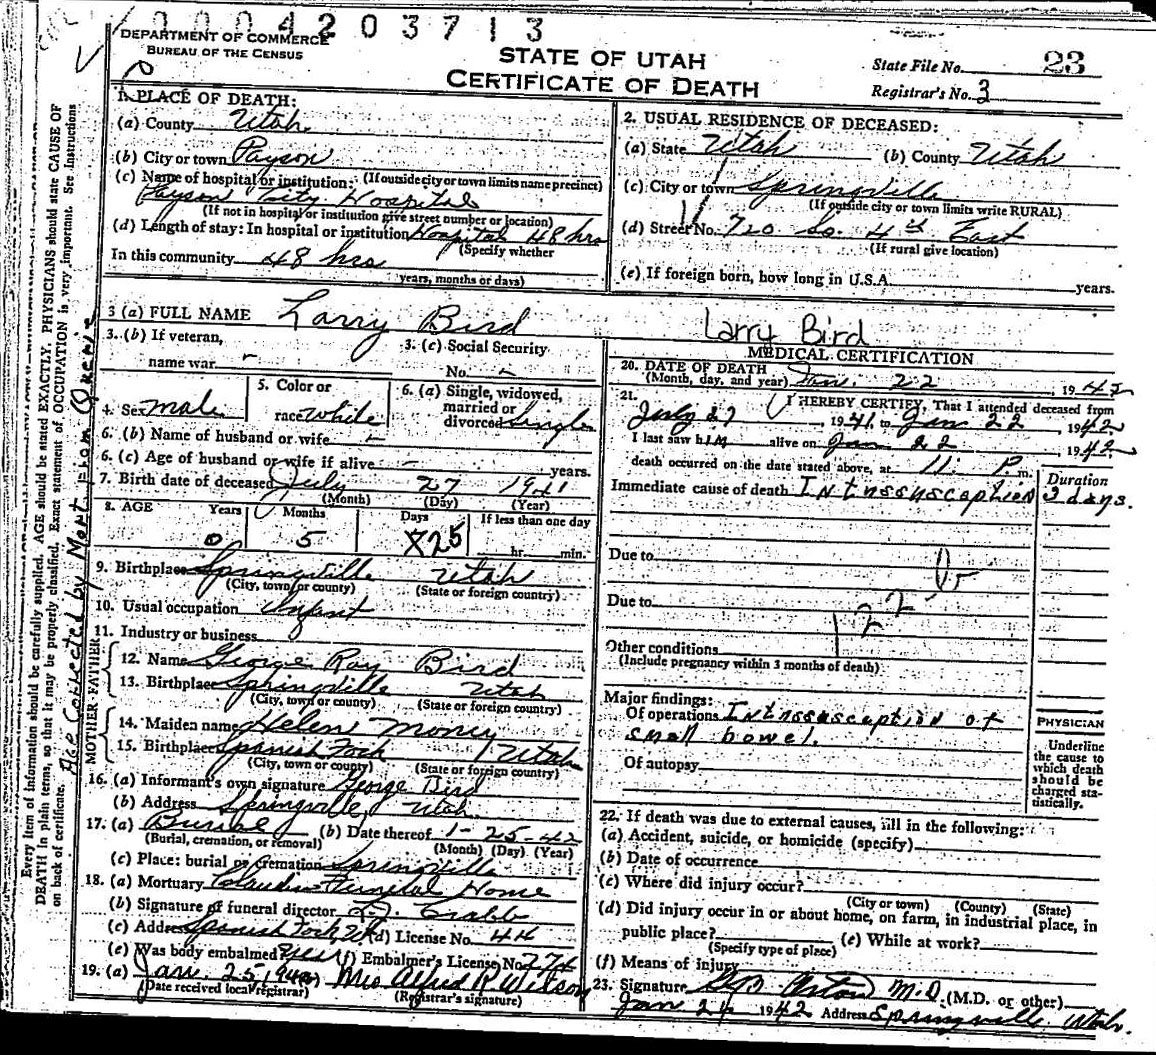 0004203713
DEPARTMENT OF COMMERCE
BUREAU OF THE CENSUS
STATE OF UTAH
CERTIFICATE OF DEATH
State File No. 23
Registrar's No. 3
1. PLACE OF DEATH:
(a) County Utah
(b) City or town Payson
(c) Name of hospital or institution: (If outside city or town limits name precinct)
Payson City Hospital
(If not in hospital or institution give street number or location)
(d) Length of stay: In hospital or institution Hospital 48 hrs
(Specify whether
In this community 48 hrs
years, months or days)
2. USUAL RESIDENCE OF DECEASED:
(a) State Utah (b) County Utah
(c) City or town Springville
(If outside city or town limits write RURAL)
(d) Street No. 720 So. 4th East
(If rural give location)
(e) If foreign born, how long in U.S.A. years.
3 (a) FULL NAME Larry Bird
Larry Bird
3. (b) If veteran,
name war -
3. (c) Social Security
No. -
4. Sex male
5. Color or
race white
6. (a) Single, widowed,
married or
divorced Single
6. (b) Name of husband or wife -
6. (c) Age of husband or wife if alive - years.
7. Birth date of deceased July 27 1941
(Month) (Day) (Year)
8. AGE Years Months Days If less than one day
0 5 25 hr. min.
9. Birthplace Springville Utah
(City, town or county) (State or foreign country)
10. Usual occupation Infant
11. Industry or business
FATHER
12. Name George Ray Bird
13. Birthplace Springville Utah
(City, town or county) (State or foreign country)
MOTHER
14. Maiden name Helen
15. Birthplace Spanish Fork Utah
(City, town or county) (State or foreign country)
16. (a) Informant's own signature George Bird
(b) Address Springville, Utah
17. (a) Burial (b) Date thereof 1-25-42
(Burial, cremation, or removal) (Month) (Day) (Year)
(c) Place: burial or cremation Springville
18. (a) Mortuary Claudin Funeral Home
(b) Signature of funeral director Crabb
(c) Address Spanish Fork, Ut (d) License No. 44
(e) Was body embalmed? yes (f) Embalmer's License No. 274
19. (a) Jan. 25, 194 (b) Mrs Alfred R. Wilson
(Date received local registrar) (Registrar's signature)
MEDICAL CERTIFICATION
20. DATE OF DEATH
(Month, day, and year) Jan. 22, 1942
21. I HEREBY CERTIFY, That I attended deceased from
July 27, 1941, to Jan 22, 1942
I last saw him alive on Jan 22, 1942
death occurred on the date stated above, at 11: P m.
Duration
Immediate cause of death Intussusception 3 days.
Due to
Due to
122 b
Other conditions
(Include pregnancy within 3 months of death)
Major findings:
Of operations Intussusception of
small bowel.
Of autopsy
PHYSICIAN
Underline
the cause to
which death
should be
charged sta-
tistically.
22. If death was due to external causes, fill in the following:
(a) Accident, suicide, or homicide (specify)
(b) Date of occurrence
(c) Where did injury occur?
(City or town) (County) (State)
(d) Did injury occur in or about home, on farm, in industrial place, in
public place? (e) While at work?
(Specify type of place)
(f) Means of injury
23. Signature M.D. (M.D. or other)
Jan 24 1942 Address Springville Utah.
Every item of information should be carefully supplied. AGE should be stated EXACTLY. PHYSICIANS should state CAUSE OF
DEATH in plain terms, so that it may be properly classified. Exact statement of OCCUPATION is very important. See instructions
on back of certificate.
Age Corrected by Mort. from Querie